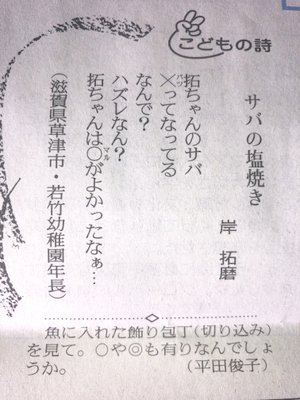 こどもの詩
サバの塩焼き
岸 拓磨
拓ちゃんのサバ
×ってなってる
バツ
なんで?
ハズレなん?
拓ちゃんは○がよかったなぁ…
マル
(滋賀県草津市・若竹幼稚園年長)
魚に入れた飾り包丁(切り込み)
を見て。○や◎も有りなんでしょ
うか。 (平田俊子)